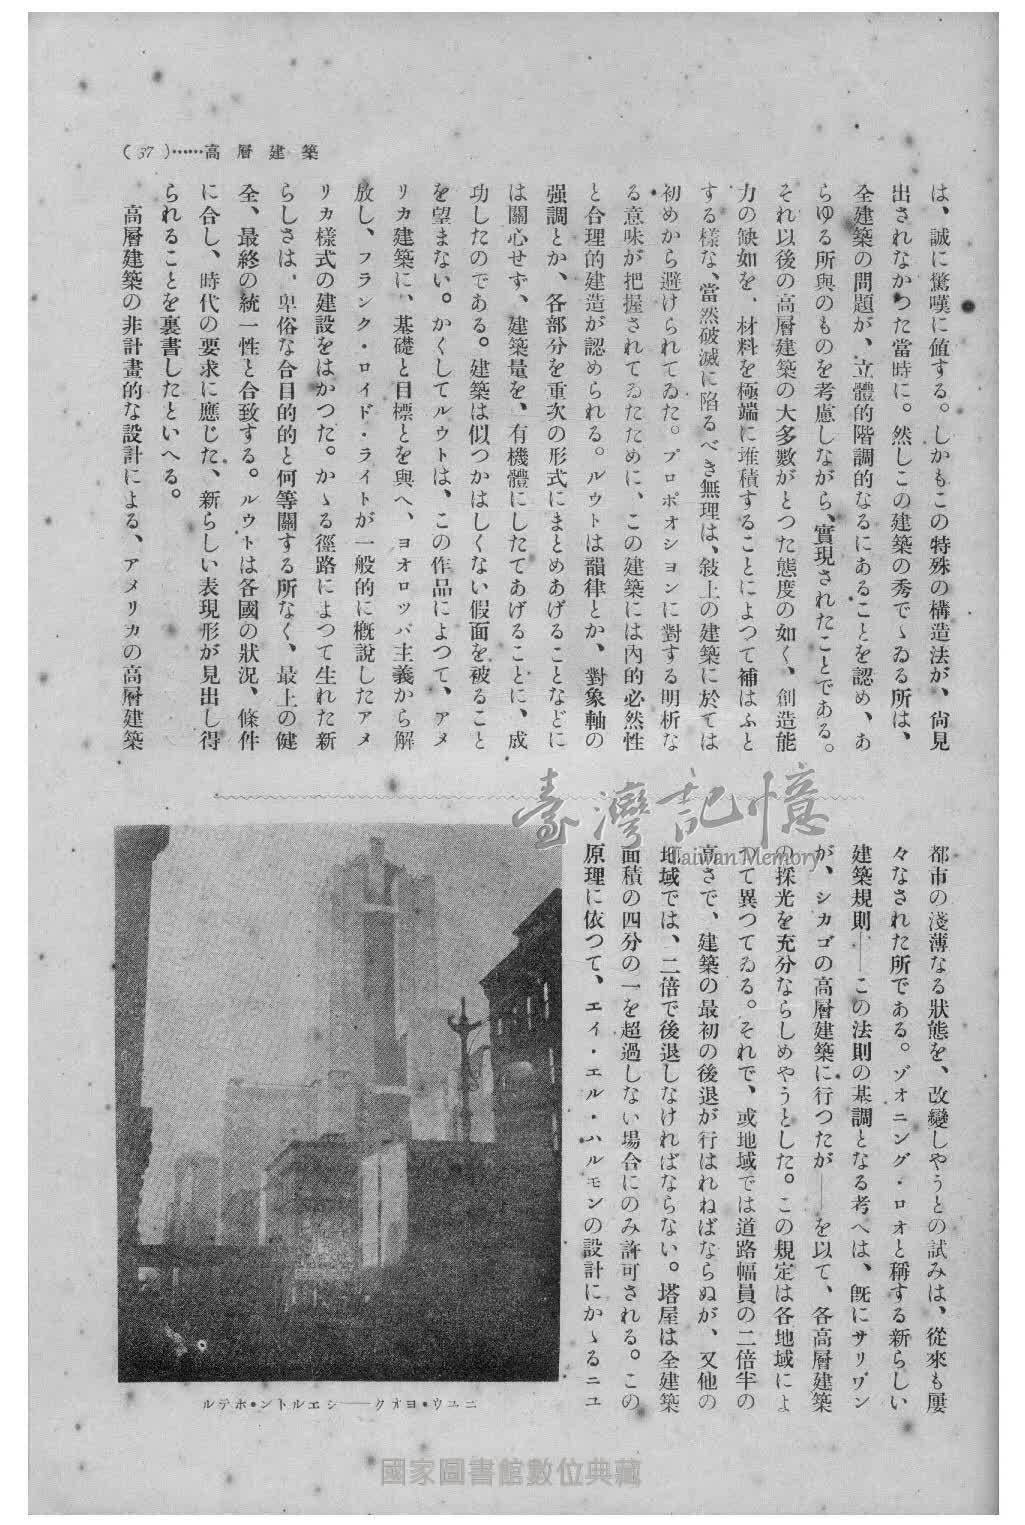 (37)……高層建築
は、誠に驚嘆に値する。しかもこの特殊の構造法が、尙見
出されなかつた當時に。然しこの建築の秀でゝゐる所は、
全建築の問題が、立體的階調的なるにあることを認め、あ
らゆる所與のものを考慮しながら、實現されたことである。
それ以後の高層建築の大多數がとつた態度の如く、創造能
力の缺如を、材料を極端に堆積することによつて補はふと
する樣な、當然破滅に陷るべき無理は、敍上の建築に於ては
初めから避けられてゐた。プロポオシヨンに對する明析な
る意味が把握されてゐたために、この建築には內的必然性
と合理的建造が認められる。ルウトは韻律とか、對象軸の
强調とか、各部分を重次の形式にまとめあげることなどに
は關心せず、建築量を、有機體にしたてあげることに、成
功したのである。建築は似つかはしくない假面を被ること
を望まない。かくしてルウトは、この作品によつて、アメ
リカ建築に、基礎と目標とを與へ、ヨオロツパ主義から解
放し、フランク・ロイド・ライトが一般的に槪說したアメ
リカ樣式の建設をはかつた。かゝる徑路によつて生れた新
らしさは、卑俗な合目的的と何等關する所なく、最上の健
全、最終の統一性と合致する。ルウトは各國の狀況、條件
に合し、時代の要求に應じた、新らしい表現形が見出し得
られることを裏書したといへる。
高層建築の非計畫的な設計による、アメリカの高層建築
都市の淺薄なる狀態を、改變しやうとの試みは、從來も屢
々なされた所である。ゾオニング・ロオと稱する新らしい
建築規則——この法則の基調となる考へは、旣にサリヴン
が、シカゴの高層建築に行つたが——を以て、各高層建築
の採光を充分ならしめやうとした。この規定は各地域によ
つて異つてゐる。それで、或地域では道路幅員の二倍半の
高さで、建築の最初の後退が行はれねばならぬが、又他の
地域では、二倍で後退しなければならない。塔屋は全建築
面積の四分の一を超過しない場合にのみ許可される。この
原理に依つて、エイ・エル・ハルモンの設計にかゝるニユ
ニユウ・ヨオク——シエルトン・ホテル
臺灣記憶
Taiwan Memory
國家圖書館數位典藏